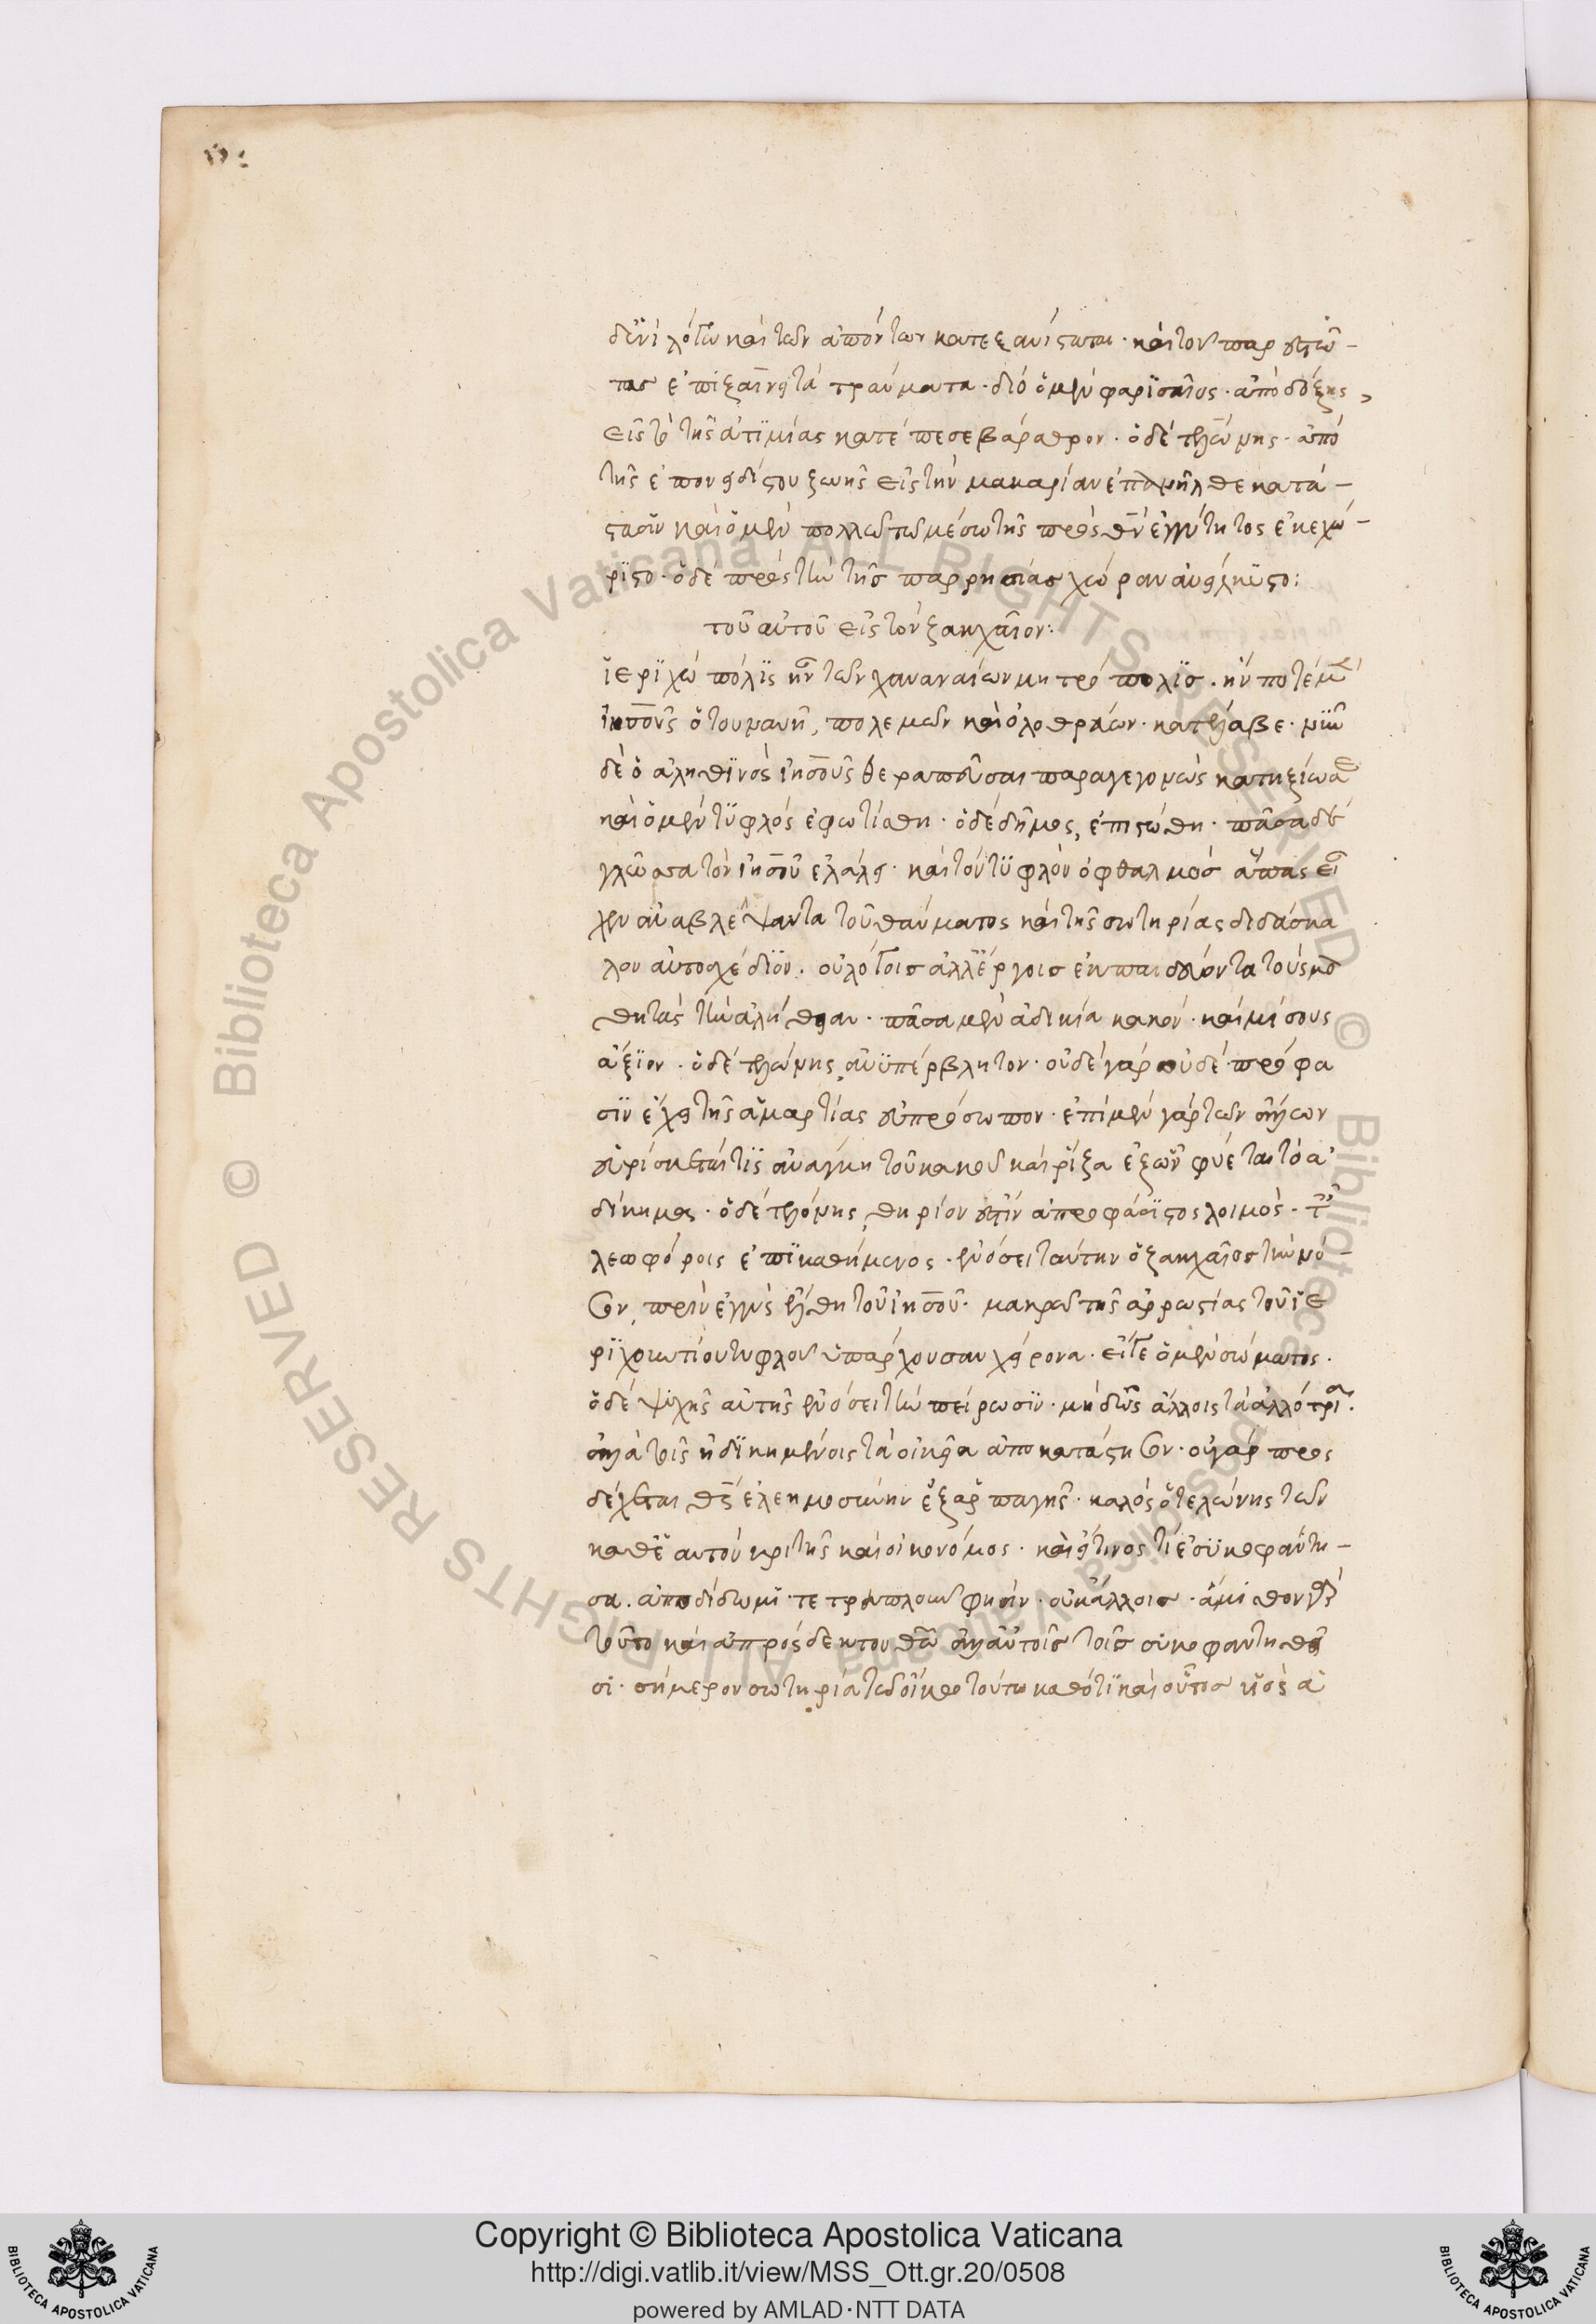 δ' ἑνὶ λόγω καὶ τῶν ἀπόντων κατεξανίσταται· καὶ τῶν παρεστώ-
τας ἐπιξαίνει τὰ τραύματα· διὸ ὁ μὲν φαρϊσαῖος· ἀπὸ δόξης,
εἰς τὸ τῆς ἀτϊμίας κατέπεσε βάραθρον· ὁ δὲ τελώνης· ἀπὸ
τῆς ἐπονειδίστου ζωῆς εἰς τὴν μακαρίαν ἐπανῆλθε κατά-
στασϊν καὶ ὁ μὲν πολλῶ τῶ μέσω τῆς πρὸς θν ἐγγύτητος ἐκεχώ-
ρϊστο· ὁ δὲ πρὸς τὴν τῆς παρρησίας χώραν ἀνείλκυστο:
τοῦ αὐτοῦ εἰς τὸν ζακχαῖον:
ἱερϊχὼ πόλϊς ἦν τῶν χαναναίων μητρόπολϊς· ἥν ποτε μὲν
ἰησοῦς ὁ τοῦ ναυῆ, πολεμῶν καὶ ὀλοθρεύων· κατέλαβε· νῦν
δὲ ὁ ἀληθϊνὸς ἰησοῦς θεραπεῦσαι παραγεγονὼς κατηξίωσε
καὶ ὁ μὲν τϋφλὸς ἐφωτίσθη· ὁ δὲ δῆμος, ἐπιστώθη· πᾶσα δὲ
γλῶσσα τὸν ἰησοῦν ἐλάλει· καὶ τὸν τϋφλὸν ὀφθαλμὸς ἅπας εἶ
χεν ἀναβλέψαντα τοῦ θαύματος καὶ τῆς σωτηρίας διδάσκα
λον αὐτοσχέδϊον· οὐ λόγοις ἀλλ' ἔργοις ἐκπαιδεύοντα τοὺς μα
θητὰς τὴν ἀλήθειαν· πᾶσα μὲν ἀδικία κακὸν· καὶ μίσους
ἄξϊον· ὁ δὲ τελώνης, ἀνϋπέρβλητον· οὐδὲ γὰρ οὐδὲ πρόφα
σϊν ἔχει τῆς ἁμαρτίας εὐπρόσωπον· ἐπὶ μὲν γὰρ τῶν ἄλλων
εὑρίσκεται τὶς ἀνάγκη τοῦ κακοῦ καὶ ρίζα ἐξ ὧν φύεται τὸ ἀ
δίκημα· ὁ δὲ τελώνης, θηρίον ἐστὶν ἀπροφάσϊστος λοιμὸς· ταῖς
λεωφόροις ἐπϊκαθήμενος· ἐνόσει ταύτην ὁ ζακχαῖος τὴν νό-
σον, πρὶν ἐγγὺς ἔλθη τοῦ ἰησοῦ· μακρῶ τῆς ἀρρωστίας τοῦ ἱε
ρϊχουντίου τυφλοῦ ὑπάρχουσαν χείρονα· εἴγε ὁ μὲν σώματος·
ὁ δὲ ψυχῆς αὐτῆς ἐνόσει τὴν πήρωσϊν· μὴ δῶς ἄλλοις τὰ ἀλλότρια·
ἀλλὰ τοῖς ἠδϊκημένοις τὰ οἰκεῖα ἀποκατάστησον· οὐ γὰρ προς
δέχεται θς ἐλεημοσύνην ἐξ ἁρπαγῆς· καλὸς ὁ τελώνης τῶν
καθ' ἑαυτοῦ κριτὴς καὶ οἰκονόμος· καὶ εἴ τινος τι ἐσϋκοφάντη-
σα· ἀποδίδωμϊ· τετραπλοῦν φησὶν· οὐκ ἄλλοις· ἄμισθον γὰρ
τοῦτο καὶ ἀπρόσδεκτον θῶ ἀλλ' αὐτοῖς τοῖς συκοφαντηθεῖ
σϊ· σήμερον σωτηρία τῶ οἴκω τούτω καθότϊ καὶ οὗτος ὑιὸς ἀ
Copyright © Biblioteca Apostolica Vaticana
http://digi.vatlib.it/view/MSS_Ott.gr.20/0508
powered by AMLAD·NTT DATA